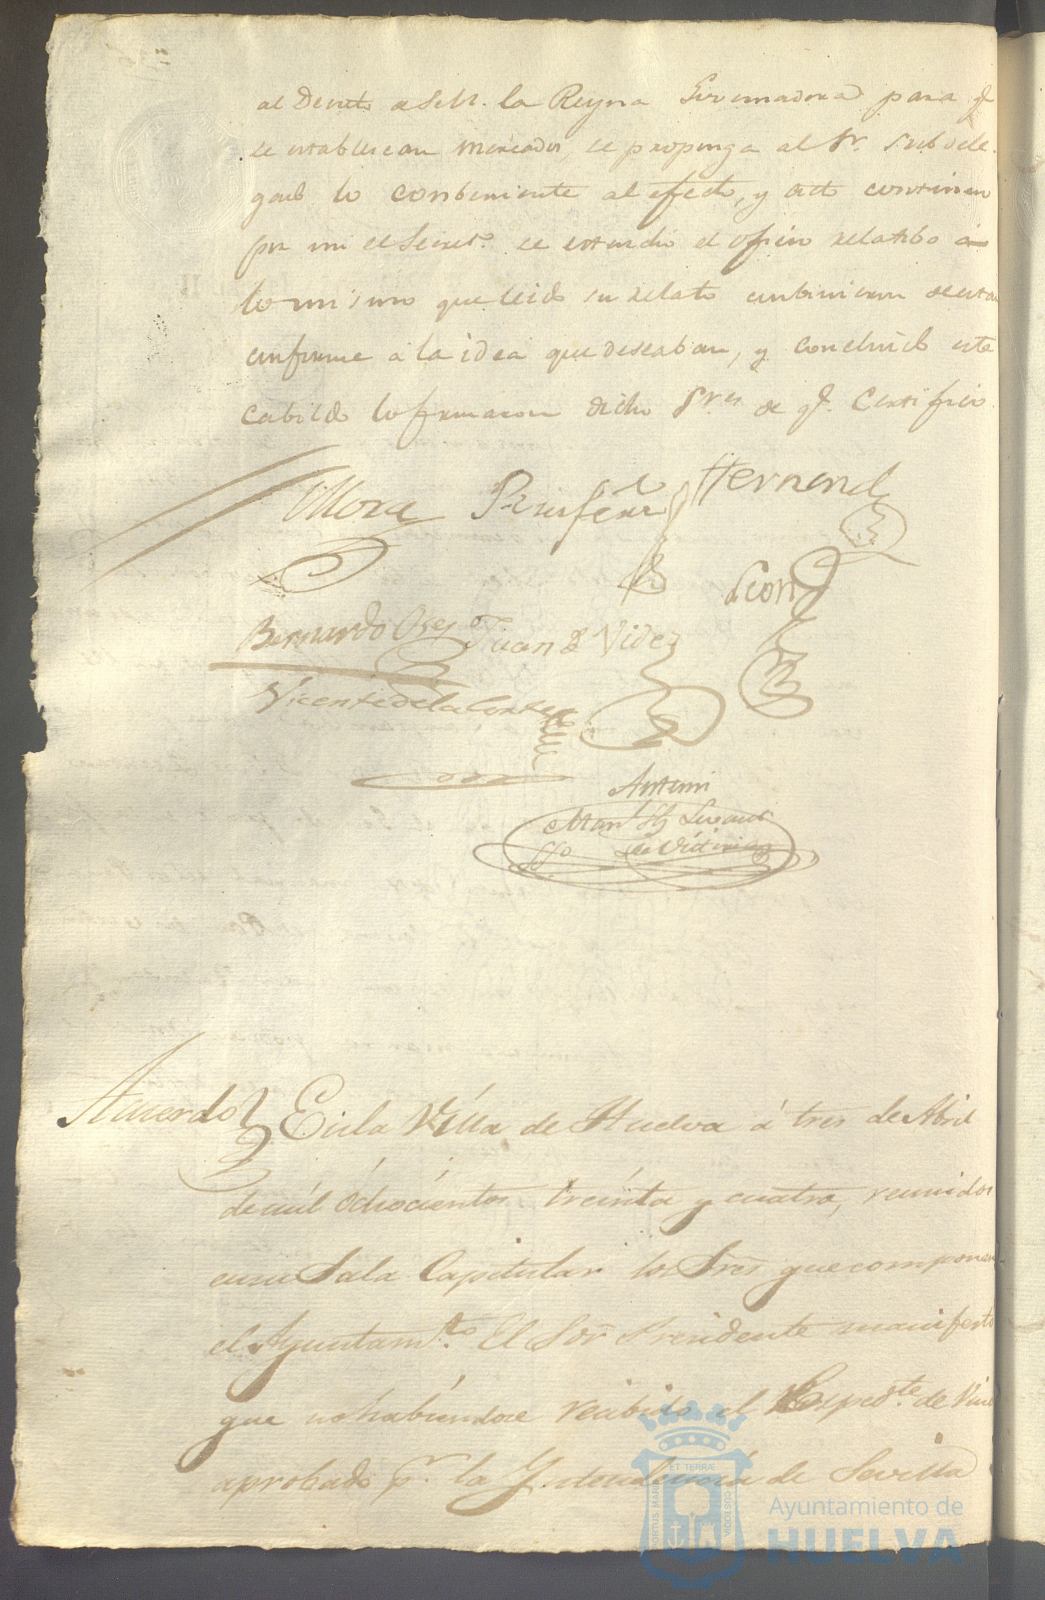 al Decreto de S. M. la Reyna Governadora para q.e
se establescan Mercados, se proponga al Sr. Subdele-
gado lo combeniente al efecto, y acto continuo
por mi el Secret.o se estendio el oficio relatibo a
lo mismo que leido su relato combinieron se estar
conforme a la idea que deseaban, y concluido este
cabildo lo firmaron dichos Sres de q.e Certifico
Mora Hernand
Leon
Bernardo Juan de Videz
Vicente de la Corte
Antoni
Acuerdo En la Villa de Huelva á tres de Abril
de mil ochocientos treinta y cuatro, reunidos
en su Sala Capitular los Sres que componen
el Ayuntam.to El Sor Presidente manifesto
que no habiendose recibido el Esped.te de
aprobado p.r la Yntendencia de Sevilla
ET TERRÆ
PORTUS MARIS
CUSTODIA
Ayuntamiento de
HUELVA